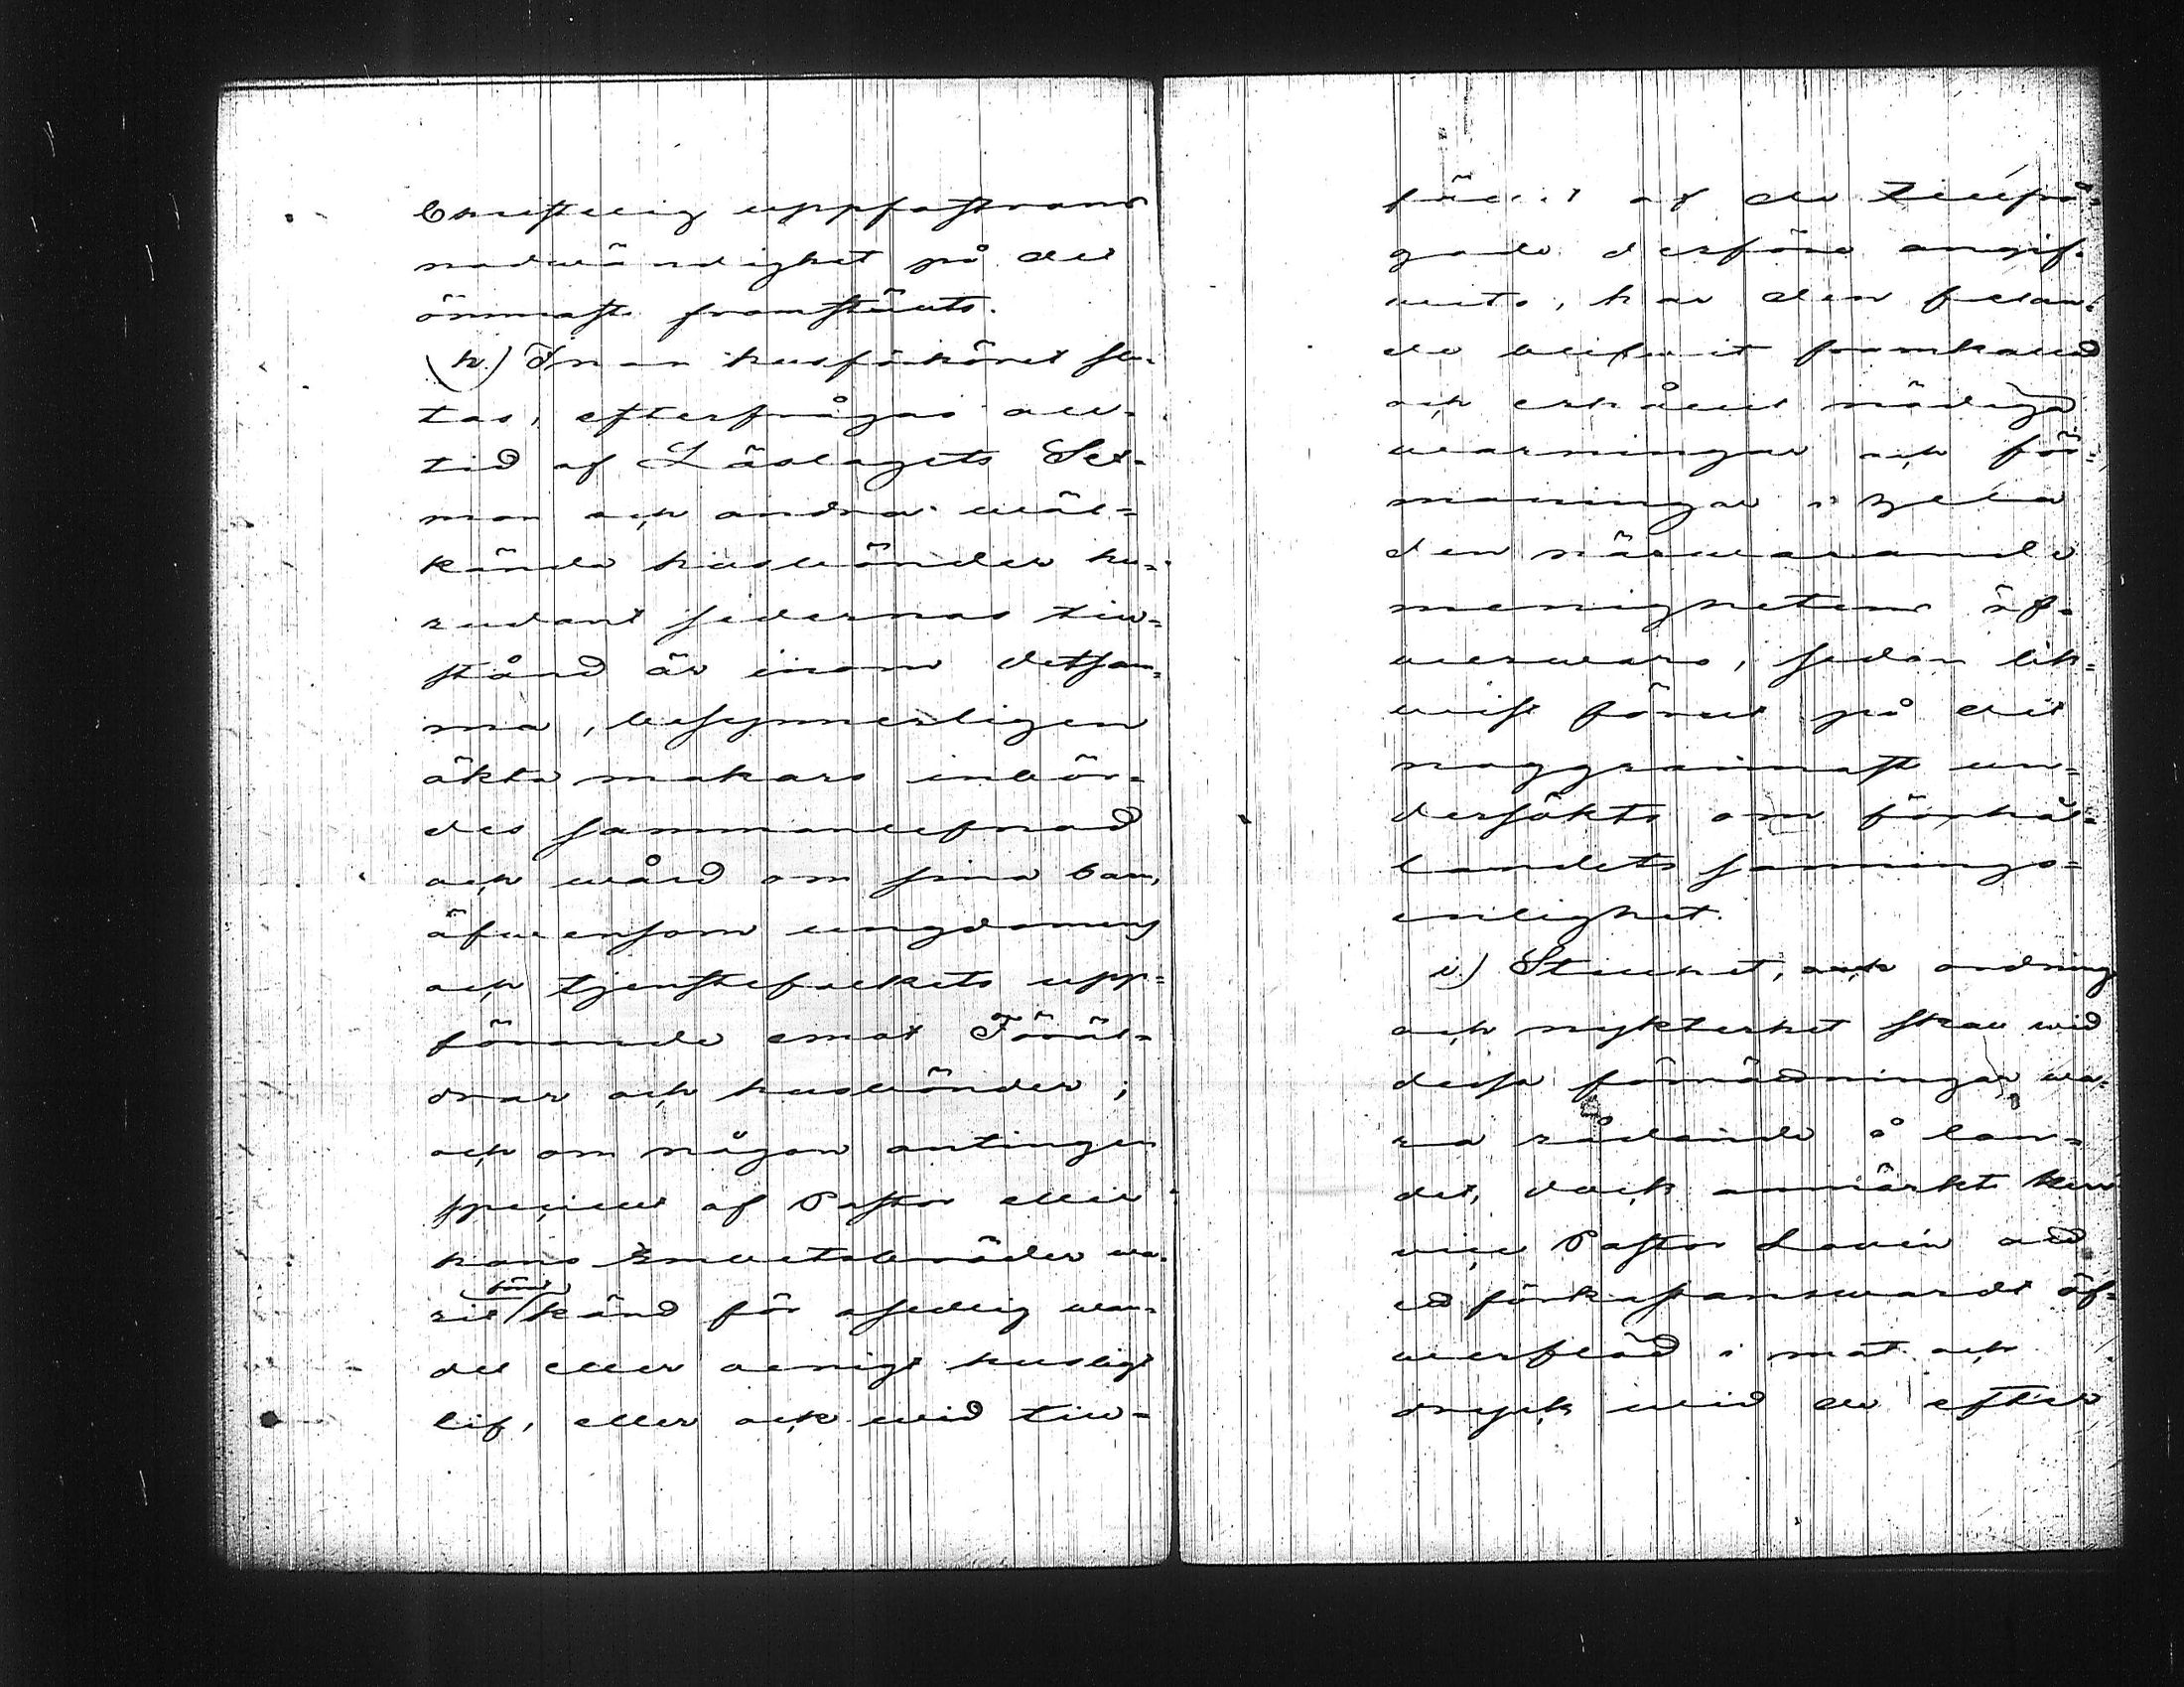 Christelig uppfostrans
nödwändighet på det
ömmaste framstälts.
h) Innan husförhöret slu-
tas, efterfrågas all-
tid af Läslagets Sex-
män och andra wäl-
kände husbönder hu-
rudant sedernas till-
stånd är inom detsam-
ma, besynnerligen
äkta makars inbör-
des sammanlefnad
och wård om sina barn,
äfwensom ungdomens
och tjenstefolkets upp-
förande emot Föräl-
drar och husbönder;
och om någon antingen
specielt af Pastor eller
hans Embetsbröder wa-
rit känd för osedlig wan-
del eller oenigt husligt
lif, eller ock wid till-
fället af de tillfrå-
gade derföre angif-
wits, har den felan-
de blifwit framkallad
och erhållit nödiga
warningar och för-
maningar i hela
den närwarande
menighetens öf-
werwaro, sedan lik-
wist förut på det
noggrannaste un-
dersökts om förhål-
landets sannings-
enlighet.
i) Stillhet, ordning
och nykterhet skall wid
dessa förrättningar wa-
ra rådande å lan-
det, dock anmärkte Herr
vice Pastor Lovén att
ett förkastanswärdt öf-
werflöd i mat och
dryck wid de efter